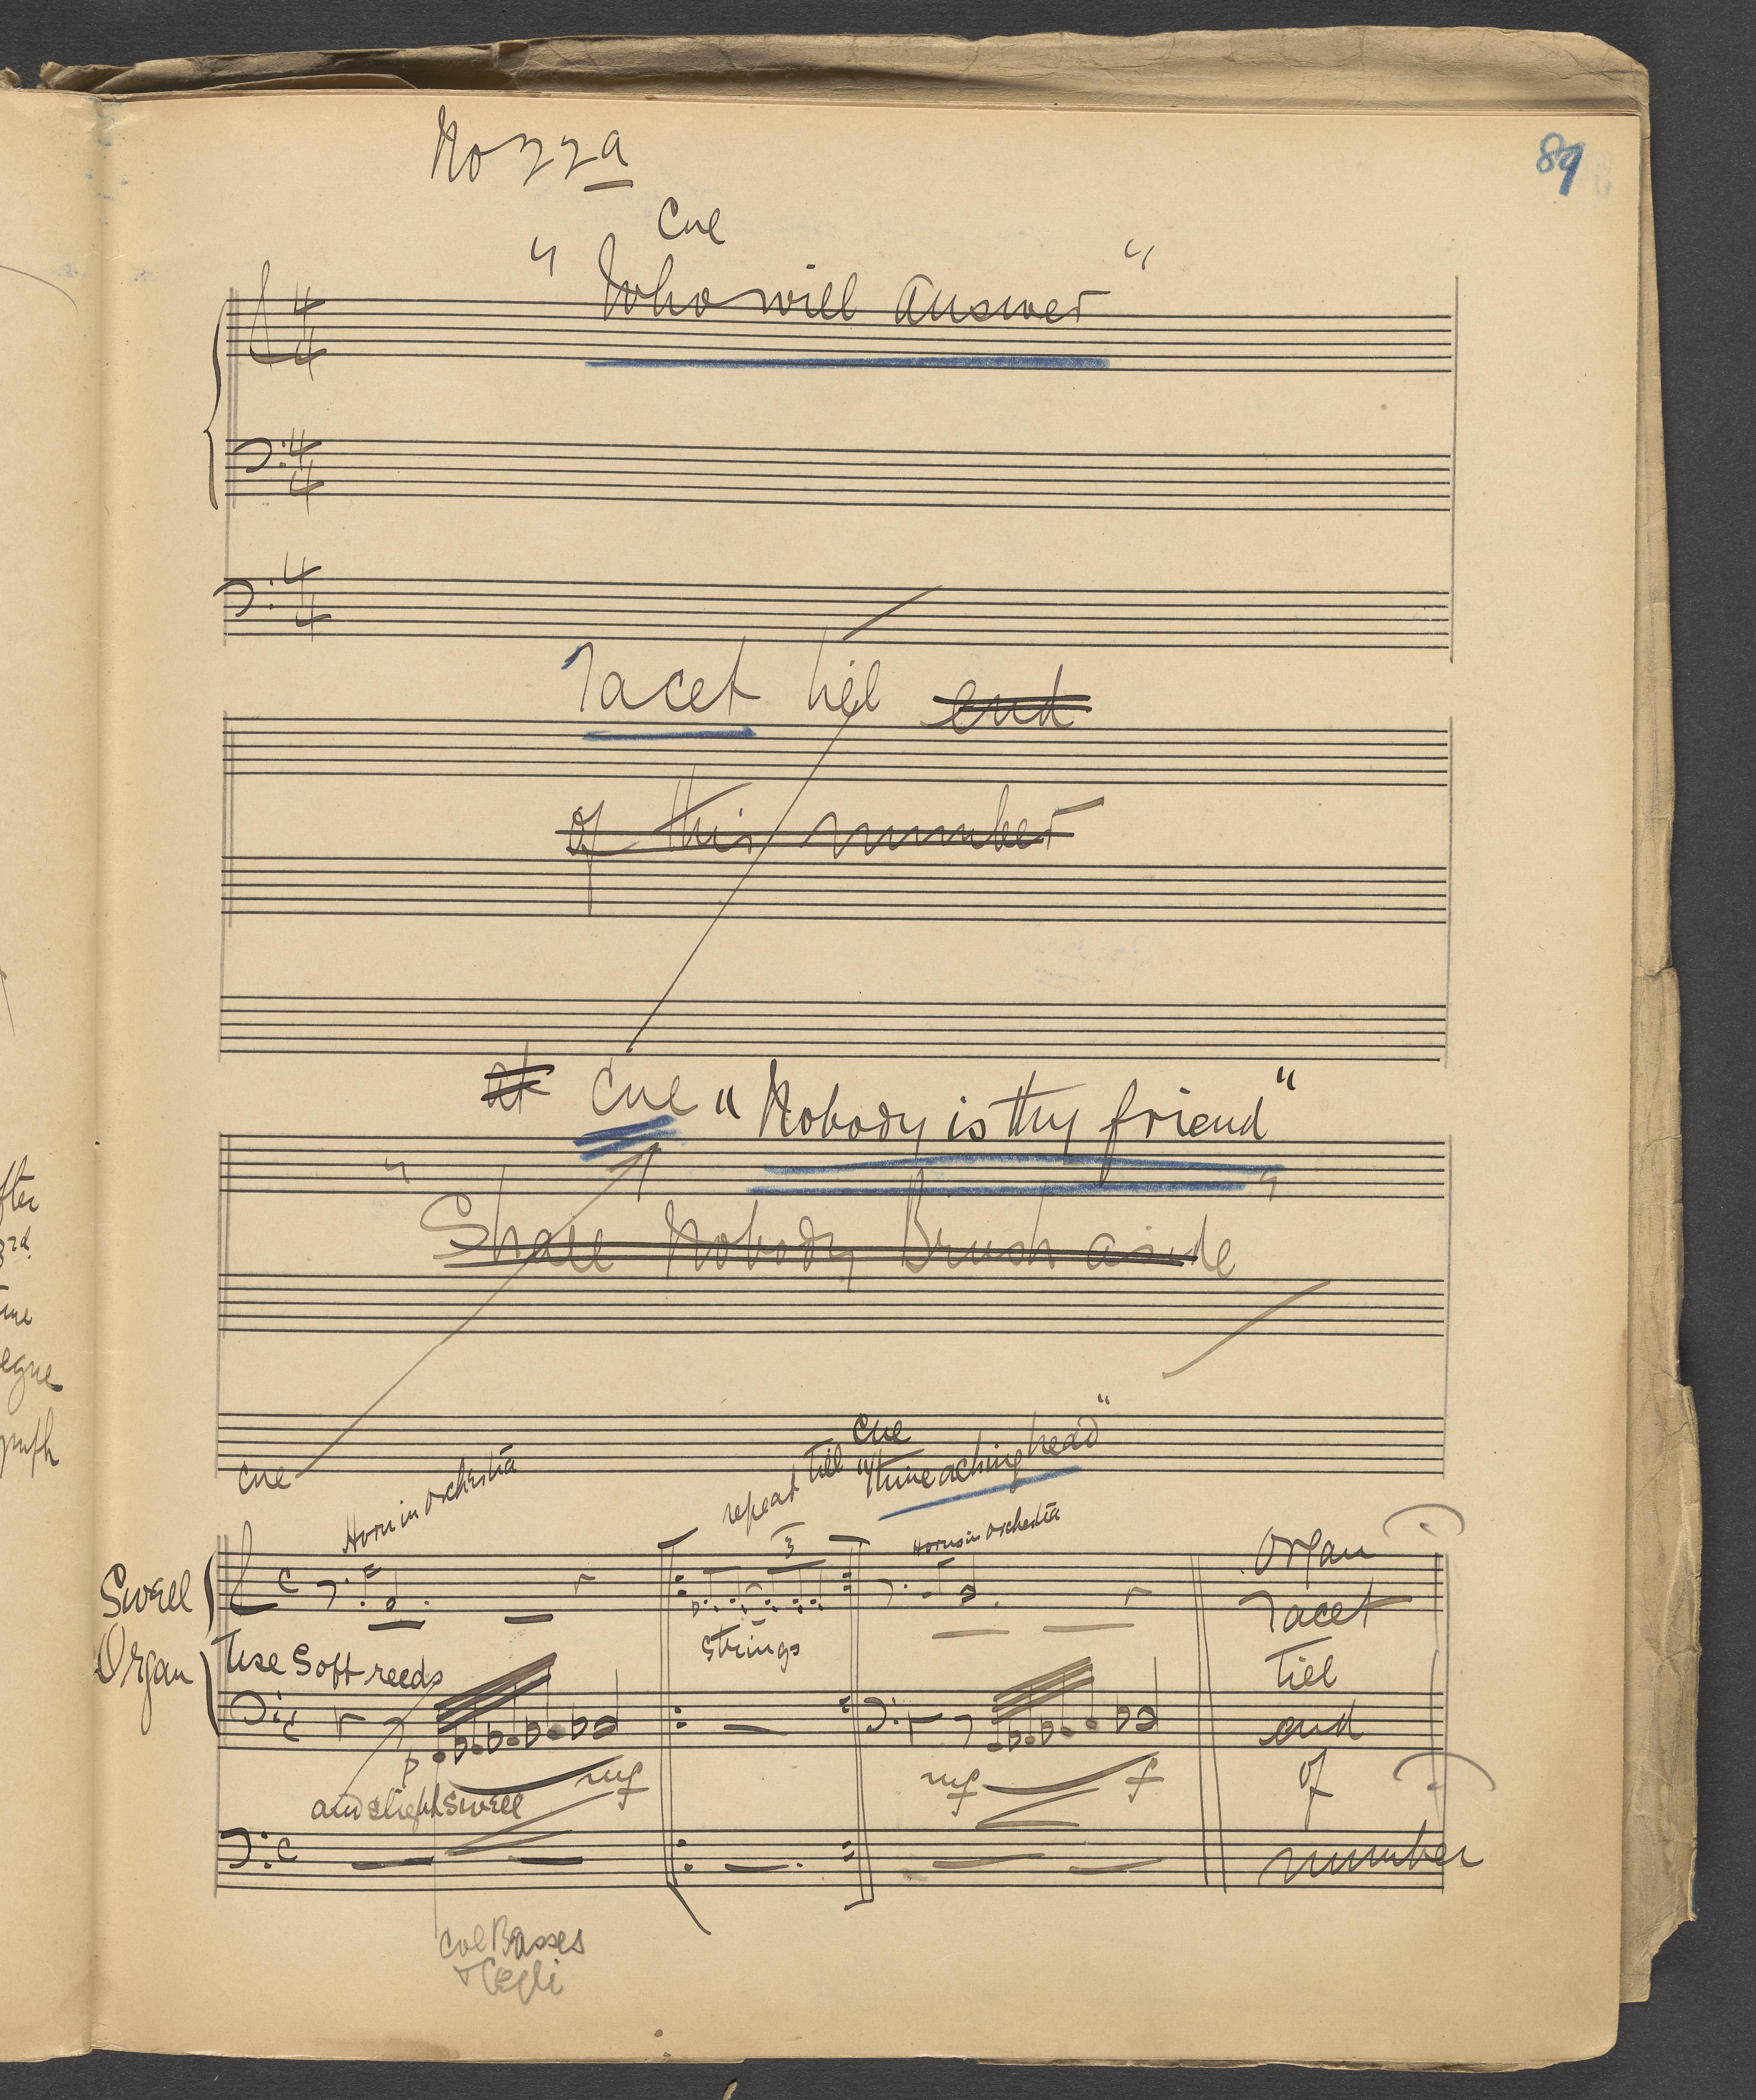 No 33a
89
Cue
" Who will answer "
4
4
4
4
4
4
Tacet till end
of this number
at Cue "Nobody is thy friend"
" Shall Nobody Brush aside "
fter
3rd
time
segue
Cue
Horn in orchestra
repeat till Cue
"thine aching head"
Horns in orchestra
3
Swell
Organ
C
Strings
Use Soft reeds
C
p
mf
mf
f
and slight swell
C
Organ
Tacet
till
end
of
number
Col Basses
+ Celli